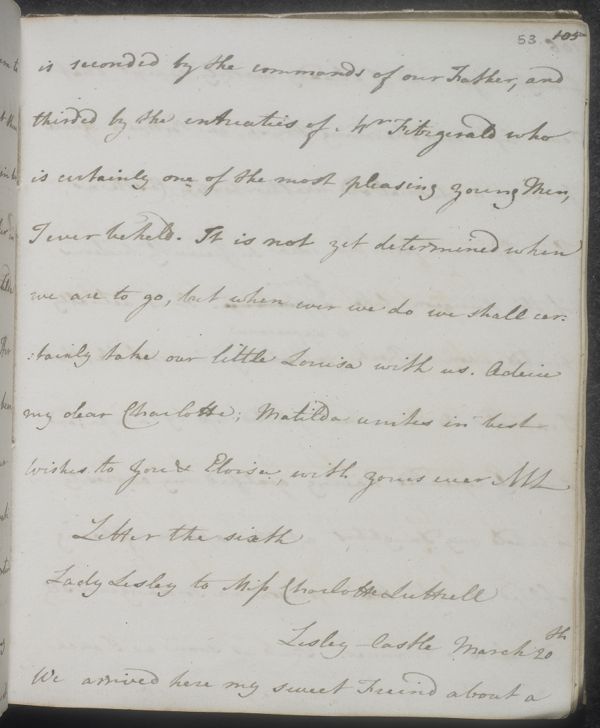 53 105
is seconded by the commands of our Father, and
thirded by the entreaties of Mr Fitzgerald who
is certainly one of the most pleasing young Men,
I ever beheld. It is not yet determined when
we are to go, but when ever we do we shall cer:
:tainly take our little Louisa with us. Adeiu
my dear Charlotte; Matilda unites in best
wishes to You & Eloisa, with yours ever ML
Letter the sixth
Lady Lesley to Miss Charlotte Luttrell
Lesley-Castle March 20th
We arrived here my sweet Freind about a